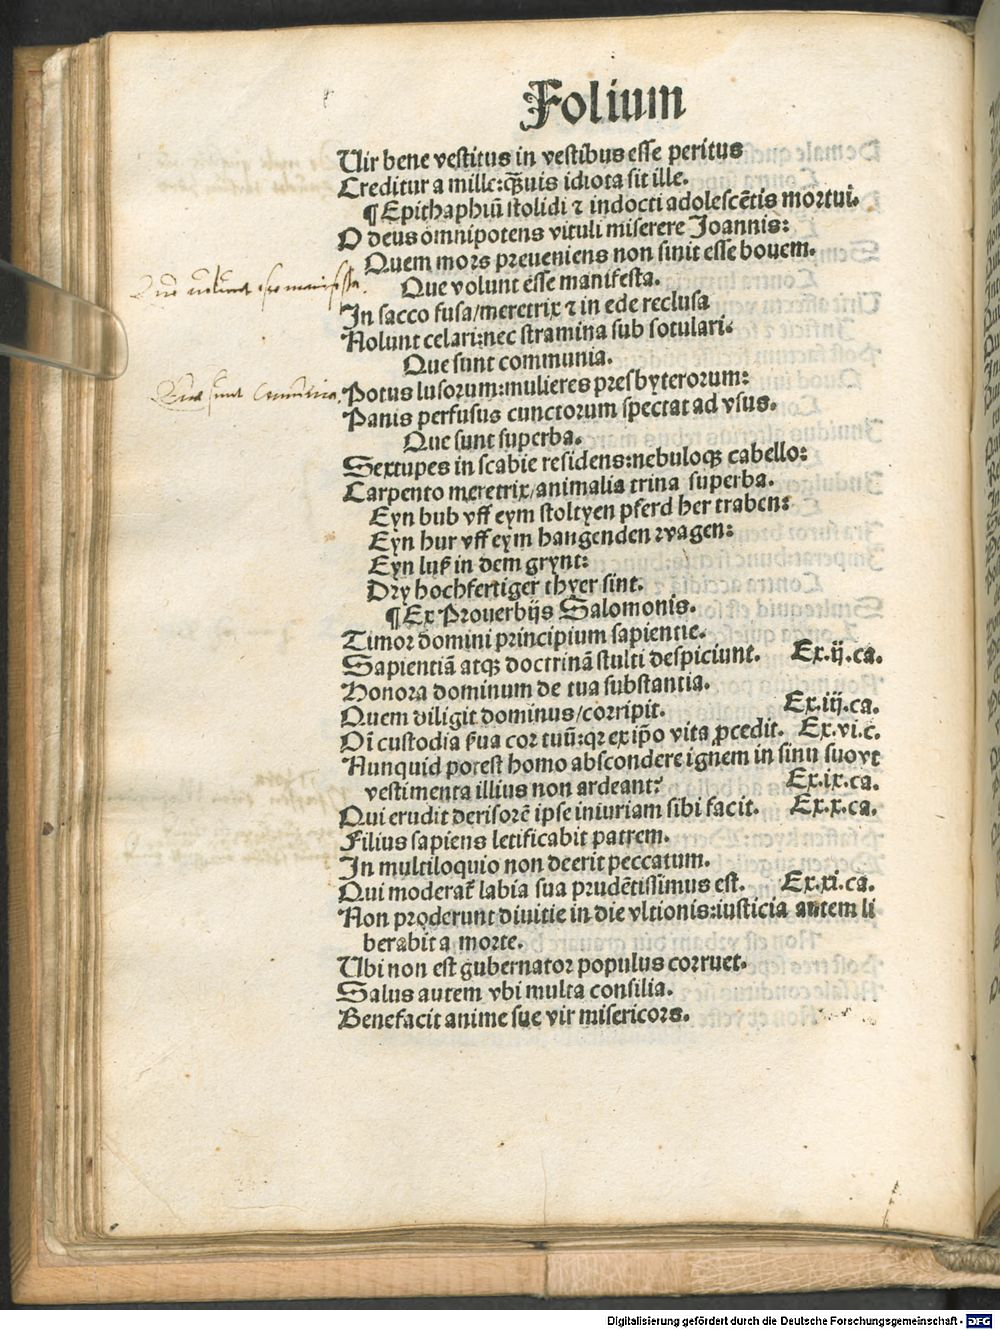 Folium
Uir bene vestitus in vestibus esse peritus
Creditur a mille: qȝuis idiota sit ille.
¶ Epithaphiū stolidi ⁊ indocti adolescētis mortui.
O deus omnipotens vituli miserere Joannis:
Quem mors preueniens non sinit esse bouem.
Que volunt esse manifesta.
Que volunt esse manifesta.
In sacco fusa/meretrix ⁊ in ede reclusa
Nolunt celari: nec stramina sub sotulari.
Que sunt communia.
Que sunt communia.
Potus lusorum: mulieres presbyterorum:
Panis perfusus cunctorum spectat ad vsus.
Que sunt superba.
Sextupes in scabie residens: nebuloqȝ cabello:
Carpento meretrix/animalia trina superba.
Eyn bub vff eym stoltzen pferd her traben:
Eyn hur vff eym hangenden wagen:
Eyn luß in dem grynt:
Dry hochfertiger thyer sint.
¶ Ex Prouerbijs Salomonis.
Timor domini principium sapientie.
Sapientiā atqȝ doctrinā stulti despiciunt. Ex.ij.ca.
Honora dominum de tua substantia.
Quem diligit dominus/corripit. Ex.iij.ca.
Oī custodia ẜua cor tuū: qꝛ ex ip̄o vita ꝓcedit. Ex.vi.c.
Nunquid potest homo abscondere ignem in sinu suo vt
vestimenta illius non ardeant? Ex.ix.ca.
Qui erudit derisorē ipse iniuriam sibi facit. Ex.x.ca.
Filius sapiens letificabit patrem.
In multiloquio non deerit peccatum.
Qui moderat᷑ labia sua prudētissimus est. Ex.xi.ca.
Non proderunt diuitie in die vltionis: iusticia autem li
berabit a morte.
Ubi non est gubernator populus corruet.
Salus autem vbi multa consilia.
Benefacit anime sue vir misericors.
Digitalisierung gefördert durch die Deutsche Forschungsgemeinschaft - DFG